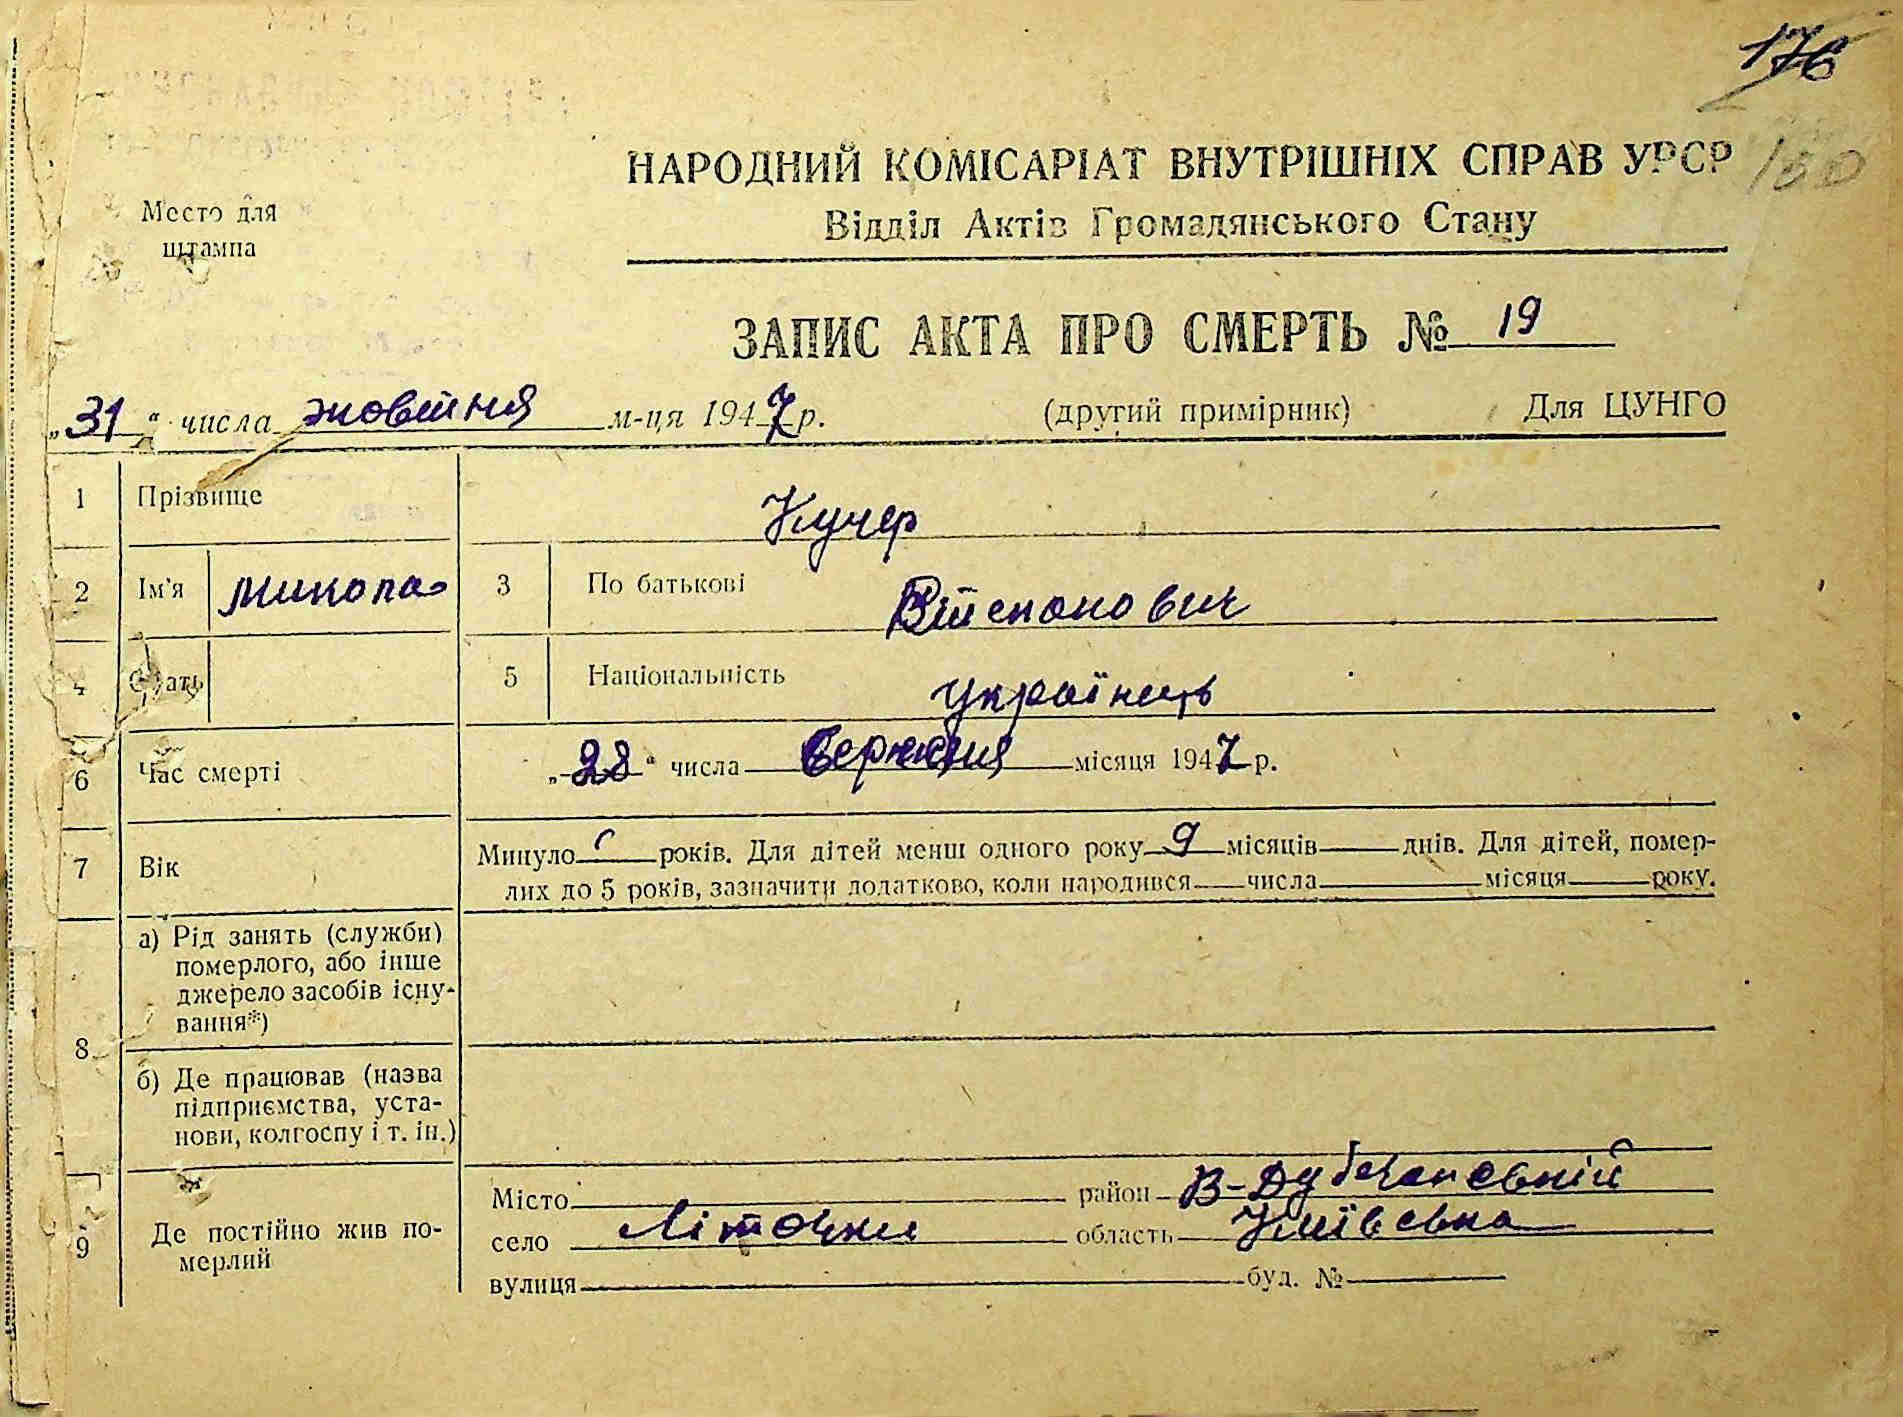 176
160
НАРОДНИЙ КОМІСАРІАТ ВНУТРІШНІХ СПРАВ УРСР
Место для
штампа
Відділ Актів Громадянського Стану
ЗАПИС АКТА ПРО СМЕРТЬ № 19
„31“ числа жовтня м-ця 1947 р. (другий примірник) Для ЦУНГО
1 Прізвище Кучер
2 Ім'я Микола 3 По батькові Вітепанович
4 Стать 5 Національність українець
6 Час смерті „28“ числа вересня місяця 1947 р.
7 Вік Минуло років. Для дітей менш одного року 9 місяців днів. Для дітей, помер-
лих до 5 років, зазначити додатково, коли народився числа місяця року.
8 а) Рід занять (служби)
померлого, або інше
джерело засобів існу-
вання*)
б) Де працював (назва
підприємства, уста-
нови, колгоспу і т. ін.)
9 Де постійно жив по-
мерлий
Місто район В-Дубечанський
село Літочки область Київська
вулиця буд. №